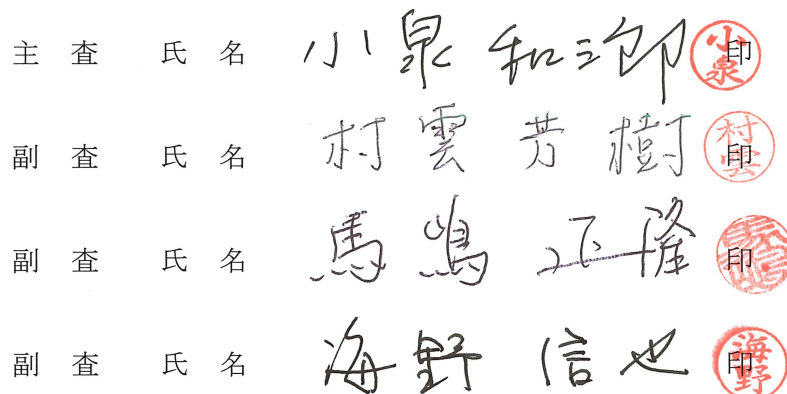 主査 氏名 小泉 和三郎 印 小泉
副査 氏名 村雲 芳樹 印 村雲
副査 氏名 馬嶋 正隆 印
副査 氏名 海野 信也 印 海野